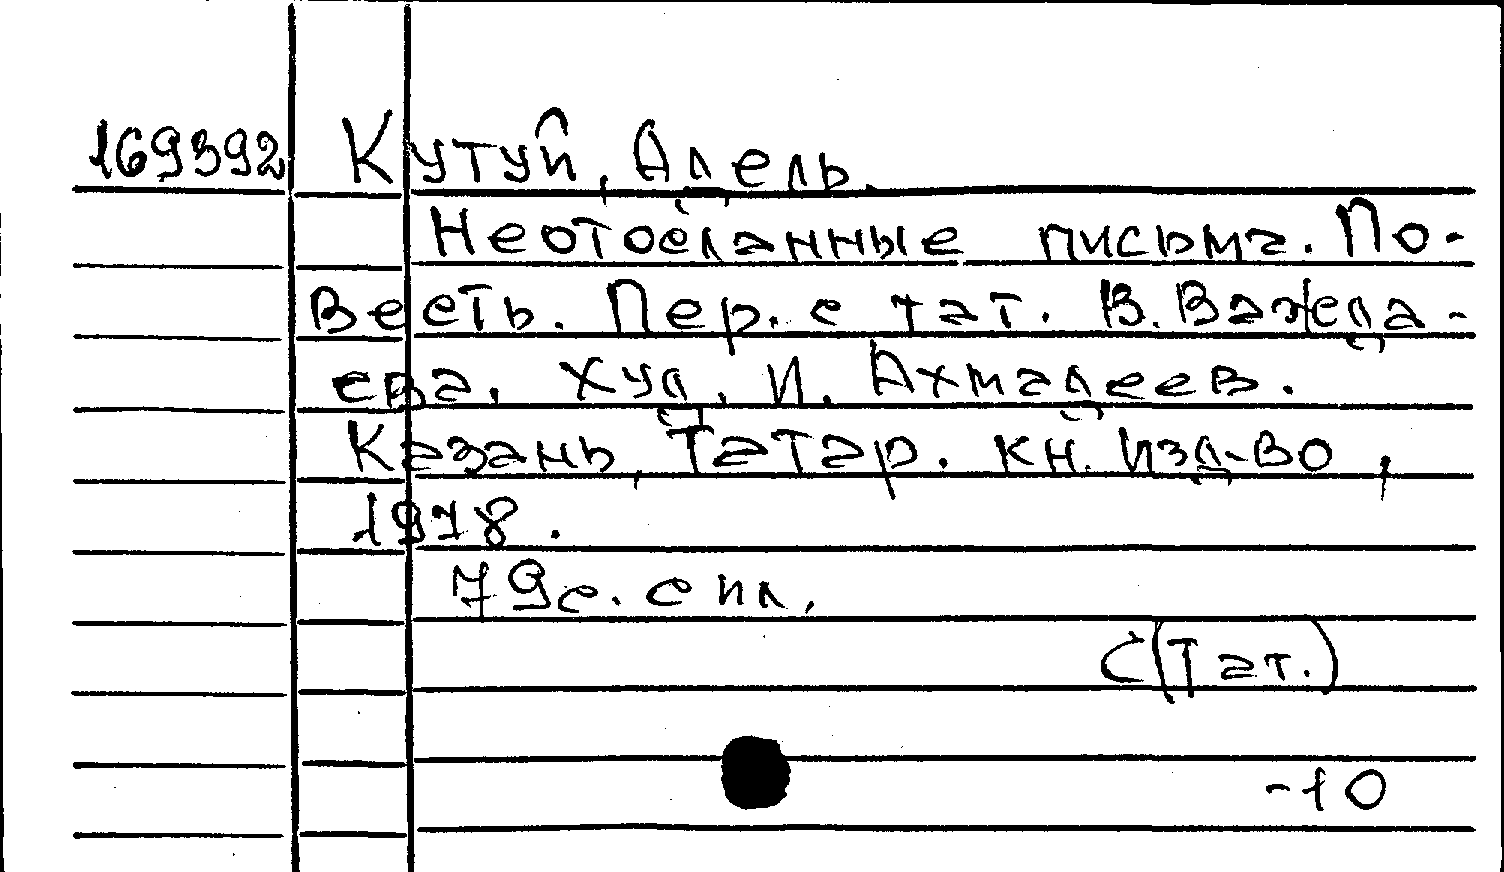 169392 Кутуй, Адель.
Неотосланные письма. По-
весть. Пер. с тат. В. Важда-
ева. Худ. И. Ахмадеев.
Казань, Татар. кн. изд-во,
1978.
79с. с ил.
С(Тат.)
-10